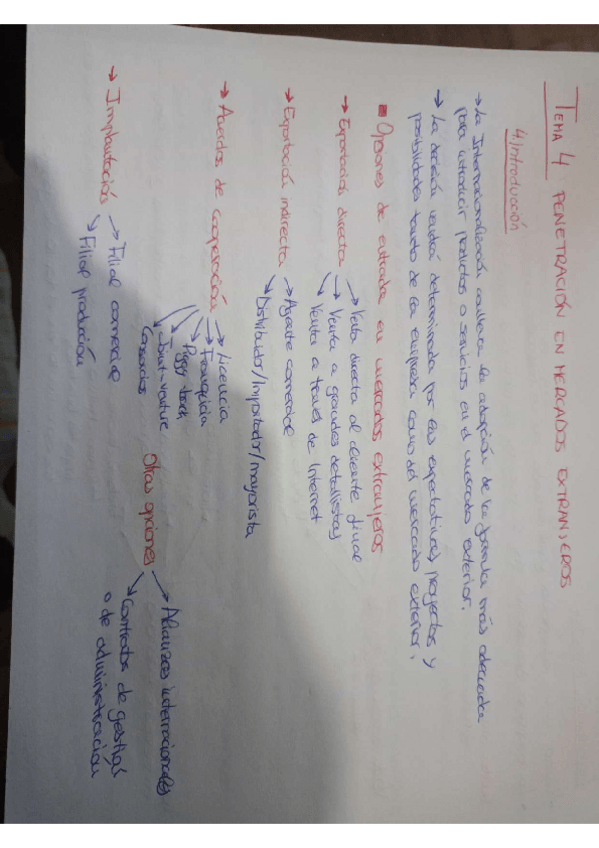 TEMA 4 PENETRACIÓN EN MERCADOS EXTRANJEROS
4.1 Introducción
→ La Internacionalización conlleva la adopción de la fórmula más adecuada
para introducir productos o servicios en el mercado exterior.
→ La decisión vendrá determinada por las expectativas, proyectos y
posibilidades tanto de la empresa como del mercado exterior.
■ Opciones de entrada en mercados extranjeros
→ Exportación directa
→ Venta directa al cliente final
→ Venta a grandes detallistas
→ Venta a través de Internet
→ Exportación indirecta
→ Agente comercial
→ Distribuidor/Importador/mayorista
→ Acuerdos de cooperación
→ Licencia
→ Franquicia
→ Piggy-back
→ Joint-venture
→ Consorcios
Otras opciones
→ Alianzas internacionales
→ Contratos de gestión
o de administración
→ Implantación
→ Filial comercial
→ Filial producción